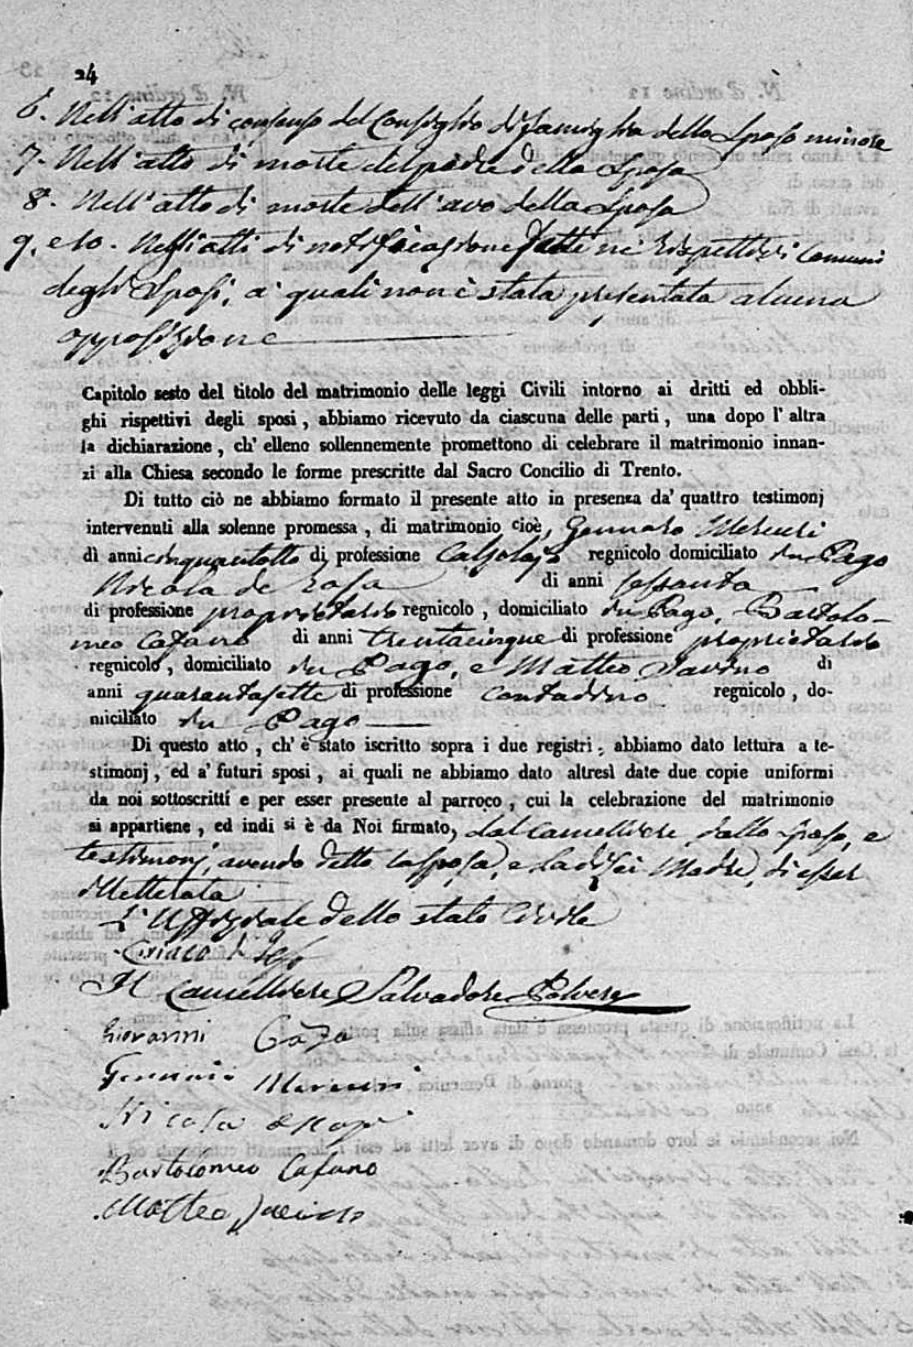 24
6. Nell'atto di consenso del Consiglio di famiglia dello Sposo minore
7. Nell'atto di morte del padre della Sposa
8. Nell'atto di morte dell'avo della Sposa
9, e 10. Negli atti di notificazione fatte ne' rispettivi Comuni
degli Sposi, a' quali non è stata presentata alcuna
opposizione
Capitolo sesto del titolo del matrimonio delle leggi Civili intorno ai dritti ed obbli-
ghi rispettivi degli sposi, abbiamo ricevuto da ciascuna delle parti, una dopo l'altra
la dichiarazione, ch' elleno sollennemente promettono di celebrare il matrimonio innan-
zi alla Chiesa secondo le forme prescritte dal Sacro Concilio di Trento.
Di tutto ciò ne abbiamo formato il presente atto in presenza da' quattro testimonj
intervenuti alla solenne promessa, di matrimonio cioè, Gennaro Mercuri
di anni cinquantotto di professione Calzolajo regnicolo domiciliato in Pago
Nicola de di anni sessanta
di professione proprietario regnicolo, domiciliato in Pago, Bartolo-
meo Cafano di anni trentacinque di professione proprietario
regnicolo, domiciliato in Pago, e Matteo Savino di
anni quarantasette di professione contadino regnicolo, do-
miciliato in Pago
Di questo atto, ch' è stato iscritto sopra i due registri, abbiamo dato lettura a te-
stimonj, ed a' futuri sposi, ai quali ne abbiamo dato altresì date due copie uniformi
da noi sottoscritti e per esser presente al parroco, cui la celebrazione del matrimonio
si appartiene, ed indi si è da Noi firmato, dal Cancelliere dallo Sposo, e
testimonj, avendo detto la Sposa, e la di lei Madre, di esser
illetterata
L'Uffiziale dello stato Civile
Il Cancelliere Salvadore Polvere
Giovanni
Gennaro Mercuri
Nicola
Bartolomeo Cafano
Matteo Savino